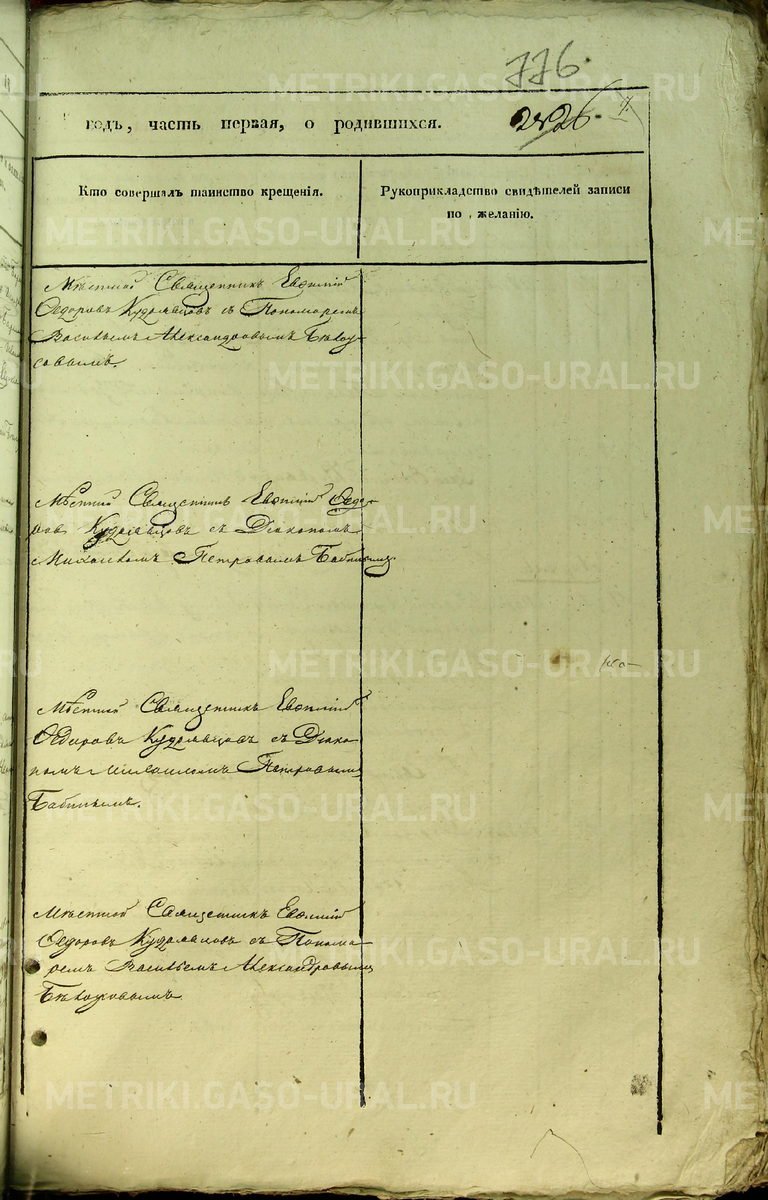 776.
годъ, часть первая, о родившихся.
Кто совершалъ таинство крещенія.
Рукоприкладство свидѣтелей записи
по желанію.
Мѣстной Священникъ Евѳимій
Ѳедоровъ Кудрявцовъ съ Пономаремъ
Васильемъ Александровымъ Бѣлоу-
совымъ.
Мѣстной Священникъ Евѳимій Ѳедо-
ровъ Кудрявцовъ съ Діакономъ
Михаиломъ Петровымъ Бабинымъ.
Мѣстной Священникъ Евѳимій
Ѳедоровъ Кудрявцовъ съ Діако-
номъ Михаиломъ Петровымъ
Бабинымъ.
Мѣстной Священникъ Евѳимій
Ѳедоровъ Кудрявцовъ съ Понома-
ремъ Васильемъ Александровымъ
METRIKI.GASO-URAL.RU